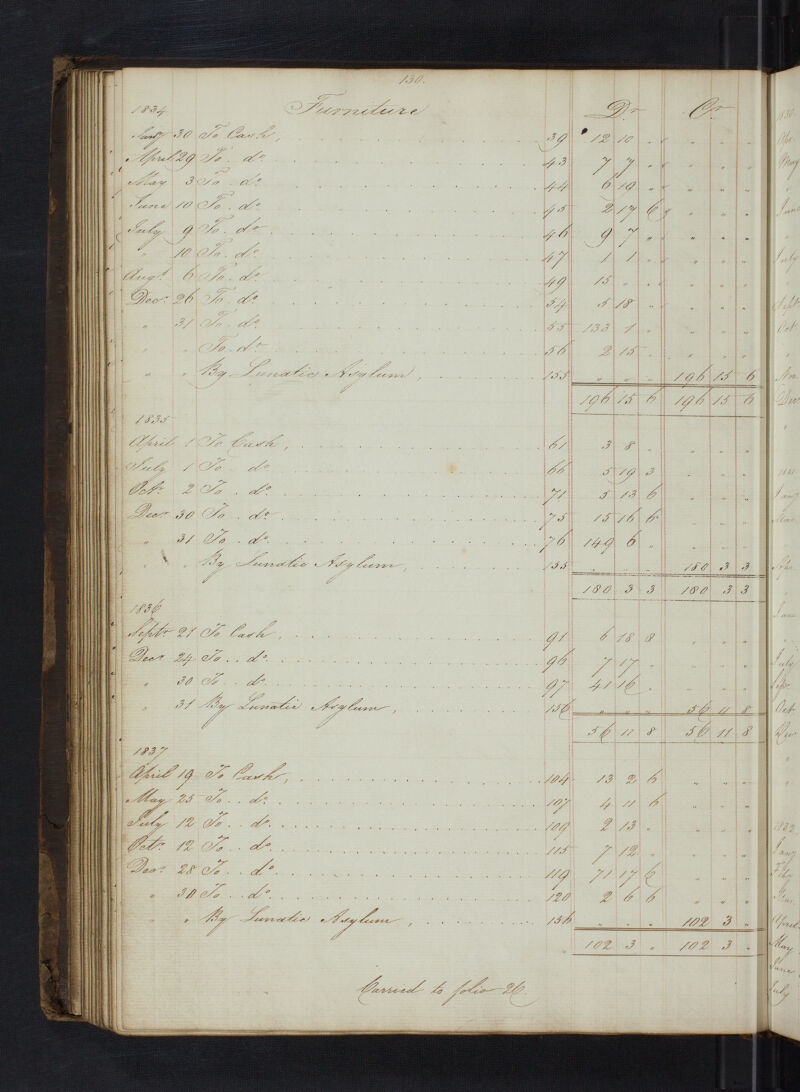 130.
1834 Furniture Dr Cr
Jany 30 To Cash, 39 12 10 "
April 29 To do 43 7 7 "
May 3 To do 44 6 19 "
June 10 To do 45 2 17 6
July 9 To do 46 9 7 "
" 10 To do 47 1 1 "
Augt 6 To do 49 15 " "
Decr 26 To do 54 5 18 "
" 31 To do 55 133 1 "
" " To do 56 2 15 "
" " By Lunatic Asylum, 155 " " " 196 15 6
196 15 6 196 15 6
1835
April 1 To Cash, 61 3 8 "
July 1 To do 66 5 19 3
Octr 2 To do 71 5 13 6
Decr 30 To do 75 15 16 6
" 31 To do 76 149 6 "
" " By Lunatic Asylum, 155 " " " 180 3 3
180 3 3 180 3 3
1836
Septr 21 To Cash, 91 6 18 8
Decr 24 To do 96 7 17 "
" 30 To do 97 41 16 "
" 31 By Lunatic Asylum, 156 " " " 56 11 8
56 11 8 56 11 8
1837
April 19 To Cash, 104 13 2 6
May 25 To do 107 4 11 6
July 12 To do 109 2 13 "
Octr 12 To do 115 7 12 "
Decr 28 To do 119 71 17 6
" 30 To do 120 2 6 6
" " By Lunatic Asylum, 156 " " " 102 3 "
102 3 " 102 3 "
Carried to folio 26.